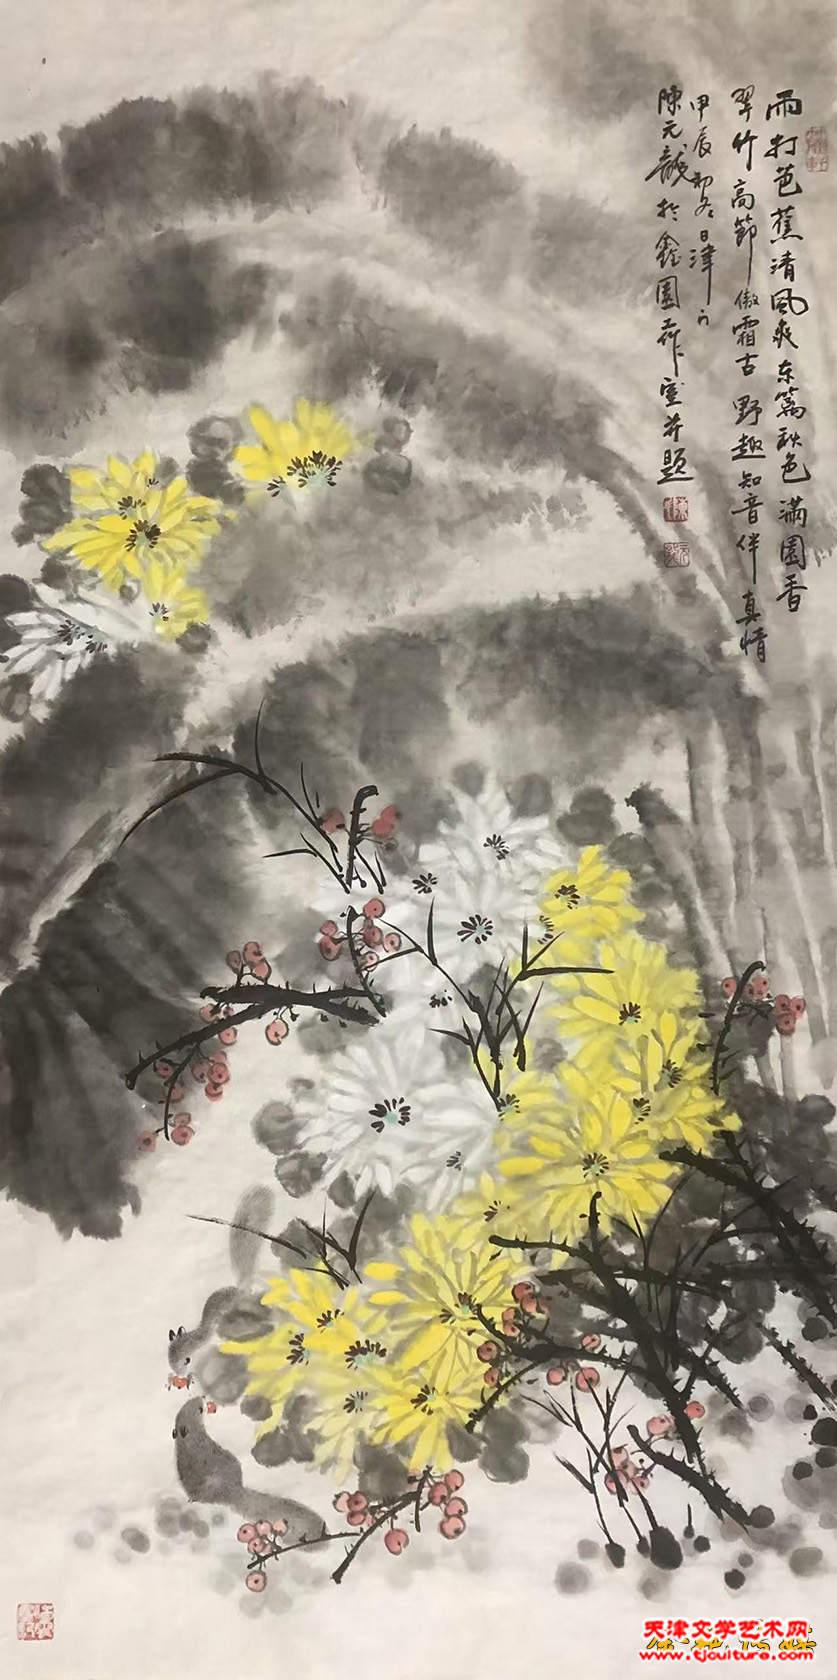 雨打芭蕉清风爽东篱秋色满園香
翠竹高節傲霜古野趣知音伴真情
甲辰初冬日津门
陳元龍於鑫園莊室并題
天津文学艺术网
www.tjculture.com